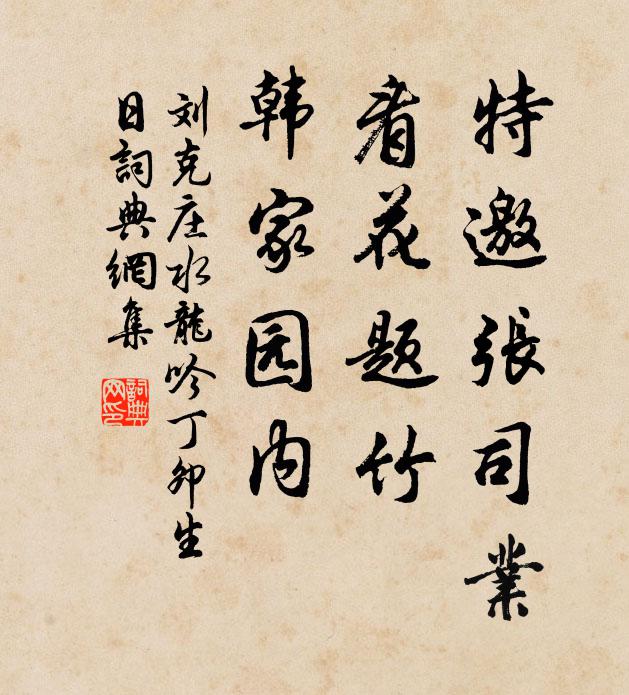 特邀張司業
看花題竹
韩家园内
刘克庄水龍吟丁卯生
日詞典網集
詞典
网印